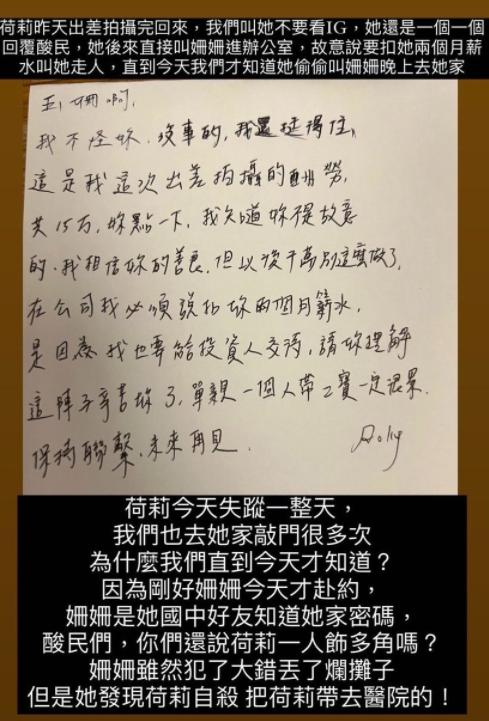 荷莉昨天出差拍攝完回來，我們叫她不要看IG，她還是一個一個
回覆酸民，她後來直接叫姍姍進辦公室，故意說要扣她兩個月薪
水叫她走人，直到今天我們才知道她偷偷叫姍姍晚上去她家
姍啊，
我不怪妳，沒事的，我還挺得住，
這是我這次出差拍攝的酬勞，
共15万，妳點一下，我知道妳不是故意
的，我相信妳的善良，但以後千萬別這麼做了，
在公司我必須說扣妳兩個月薪水，
是因為我也要給投資人交待，請妳理解
這陣子辛苦妳了，單親一個人帶2寶一定很累．
保持聯繫，未來再見．
荷莉今天失蹤一整天，
我們也去她家敲門很多次
為什麼我們直到今天才知道？
因為剛好姍姍今天才赴約，
姍姍是她國中好友知道她家密碼，
酸民們，你們還說荷莉一人飾多角嗎？
姍姍雖然犯了大錯丟了爛攤子
但是她發現荷莉自殺 把荷莉帶去醫院的！